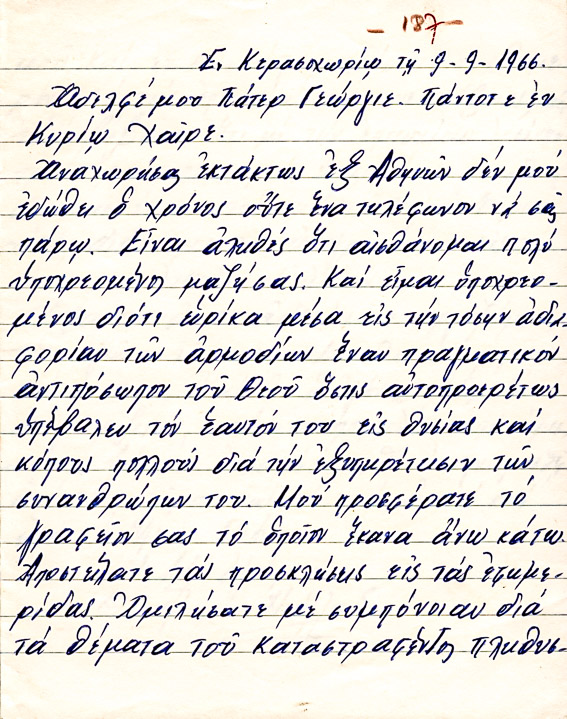 - 187 -
Ἐν Κερασοχωρίῳ τῇ 9-9-1966.
Ἀδελφέ μου Πάτερ Γεώργιε. Πάντοτε ἐν
Κυρίῳ Χαῖρε.
Ἀναχωρήσας ἐκτάκτως ἐξ Ἀθηνῶν δέν μοῦ
ἐδώθει ὁ χρόνος οὔτε ἕνα τηλέφωνον νά σᾶς
πάρω. Εἶναι ἀληθές ὅτι αἰσθάνομαι πολύ
ὑποχρεομένος μαζύ σας. Καί εἶμαι ὑποχρεο-
μένος διότι εὑρίκα μέσα εἰς τήν τόσην ἀδια-
φορίαν τῶν ἁρμοδίων ἕναν πραγματικόν
ἀντιπόσωπον τοῦ Θεοῦ ὅστις αὐτοπροερέτως
ὑπέβαλεν τόν ἑαυτόν του εἰς θυσίας καί
κόπους πολλούς διά τήν ἐξυπηρέτησιν τῶν
συνανθρώπων του. Μοῦ προσφέρατε τό
γραφεῖον σας τό ὁποῖον ἔκανα ἄνω κάτω.
Ἀποστείλατε τάς προσκλήσεις εἰς τάς ἐφημε-
ρίδας. Ὁμιλήσατε μέ συμπόνοιαν διά
τά θέματα τοῦ καταστραφέντος πληθυσ-